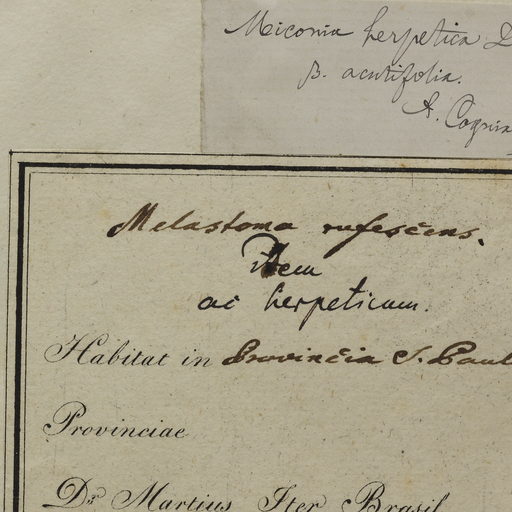 Miconia herpetica D
β. acutifolia.
A. Cognia
Melastoma rufescens.
Item
ac herpeticum.
Habitat in Provincia S. Paul
Provinciae
Dr Martius Iter Brasil